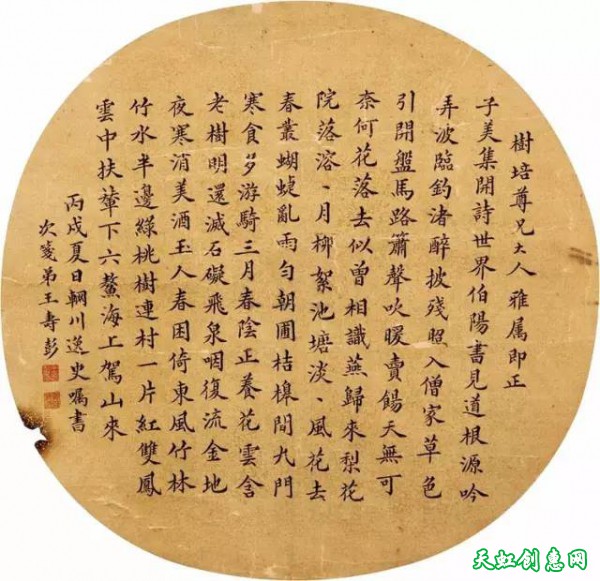 樹培尊兄大人雅属即正
子美集開詩世界伯陽書見道根源吟
弄波臨釣渚醉披殘照入僧家草色
引開盤馬路簫聲吹暖賣餳天無可
奈何花落去似曾相識燕歸來梨花
院落溶、月柳絮池塘淡、風花去
春叢蝴蜨亂雨勻朝圃桔槹閒九門
寒食多游騎三月春陰正養花雲含
老樹明還滅石礙飛泉咽復流金地
夜寒消美酒玉人春困倚東風竹林
竹水半邊綠桃樹連村一片紅雙鳳
雲中扶輦下六鰲海上駕山來
丙戌夏日輞川逸史嘱書
次箋弟王壽彭
天虹创意网